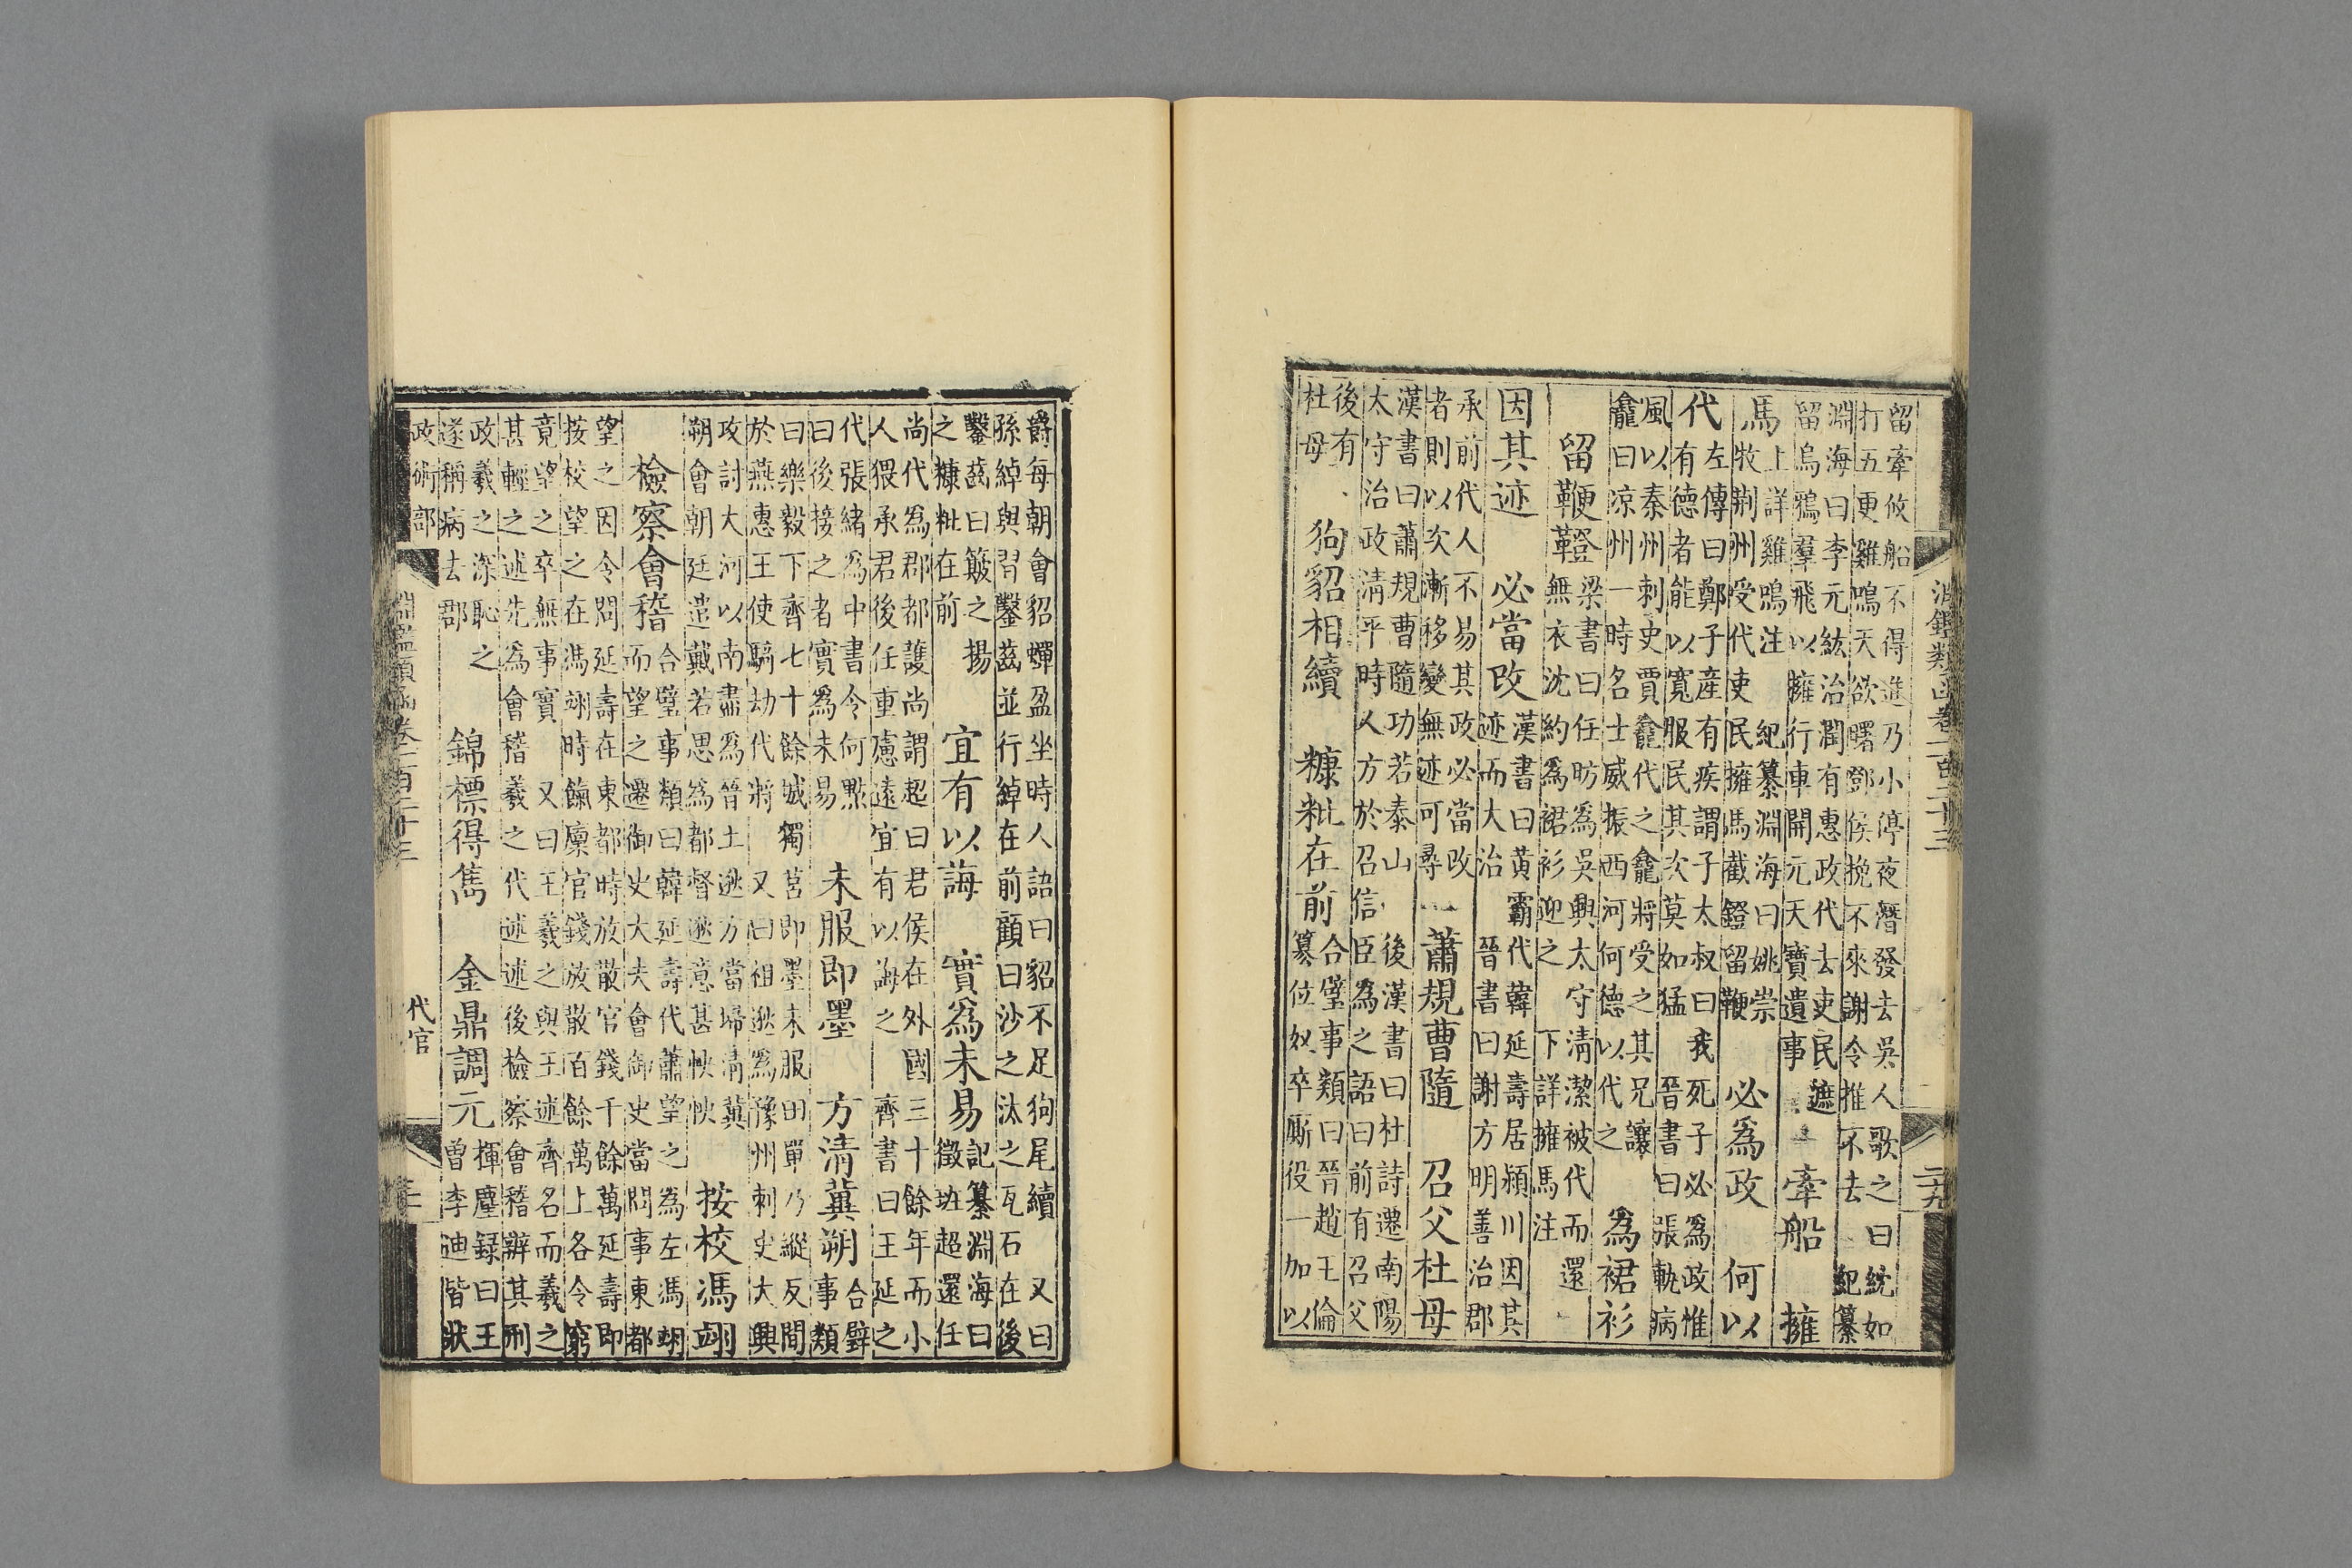 淵鑑類函卷一百二十三
二九
留牽攸船不得進乃小停夜潛發去吳人歌之曰紞如
打五更雞鳴天欲曙鄧侯挽不來謝令推不去 紀纂
淵海曰李元紘治潤有惠政代去吏民遮
留烏鴉羣飛以擁行車開元天寶遺事
牽船 擁
馬
上詳雞鳴注 紀纂淵海曰姚崇
牧荆州受代吏民擁馬截鐙留鞭
必爲政 何以
代
左傳曰鄭子産有疾謂子太叔曰我死子必爲政惟
有德者能以寬服民其次莫如猛 晉書曰張軌病
風以秦州刺史賈龕代之龕將受之其兄讓
龕曰凉州一時名士威振西河何德以代之
爲裙衫
留鞭鞾
梁書曰任昉爲吳興太守清潔被代而還
無衣沈約爲裙衫迎之 下詳擁馬注
因其迹 必當改
漢書曰黃霸代韓延壽居潁川因其
迹而大治 晉書曰謝方明善治郡
承前代人不易其政必當改
者則以次漸移變無迹可尋
蕭規曹隨 召父杜母
漢書曰蕭規曹隨功若泰山 後漢書曰杜詩遷南陽
太守治政清平時人方於召信臣爲之語曰前有召父
後有
杜母
狗貂相續 糠粃在前
合璧事類曰晉趙王倫
篡位奴卒厮役一加以
爵每朝會貂蟬盈坐時人語曰貂不足狗尾續 又曰
孫綽與習鑿齒並行綽在前顧曰沙之汰之瓦石在後
鑿齒曰簸之揚
之糠粃在前
宜有以誨 實爲未易
記纂淵海曰
徵班超還任
尚代爲郡都護尚謂超曰君侯在外國三十餘年而小
人猥承君後任重慮遠宜有以誨之 齊書曰王延之
代張緒爲中書令何點
曰後接之者實爲未易
未服即墨 方清冀朔
合璧
事類
曰樂毅下齊七十餘城獨莒即墨未服田單乃縱反間
於燕惠王使騎劫代將 又曰祖逖爲豫州刺史大興
攻討大河以南盡爲晉土逖方當埽清冀
朔會朝廷遣戴若思爲都督逖意甚怏怏
按校馮翊
檢察會稽
合璧事類曰韓延壽代蕭望之爲左馮翊
而望之遷御史大夫會御史當問事東都
望之因令問延壽在東都時放散官錢千餘萬延壽即
按校望之在馮翊時餼廩官錢放散百餘萬上各令窮
竟望之卒無事實 又曰王羲之與王述齊名而羲之
甚輕之述先爲會稽羲之代述述後檢察會稽辯其刑
政羲之深恥之
遂稱病去郡
錦標得雋 金鼎調元
揮麈録曰王
曾李迪皆狀
政術部
淵鑑類函卷一百二十三
代官